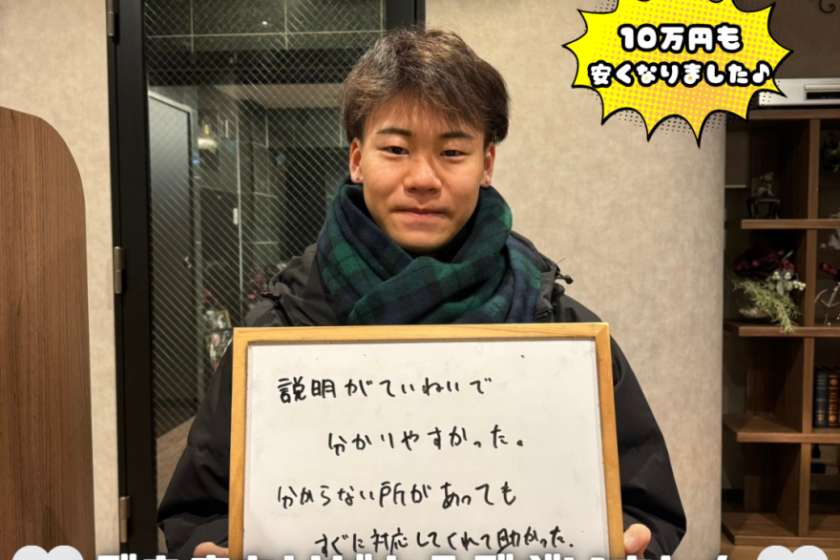 10万円も
安くなりました♪
説明がていねいで
分かりやすかった。
分からない所があっても
すぐに対応してくれて助かった。